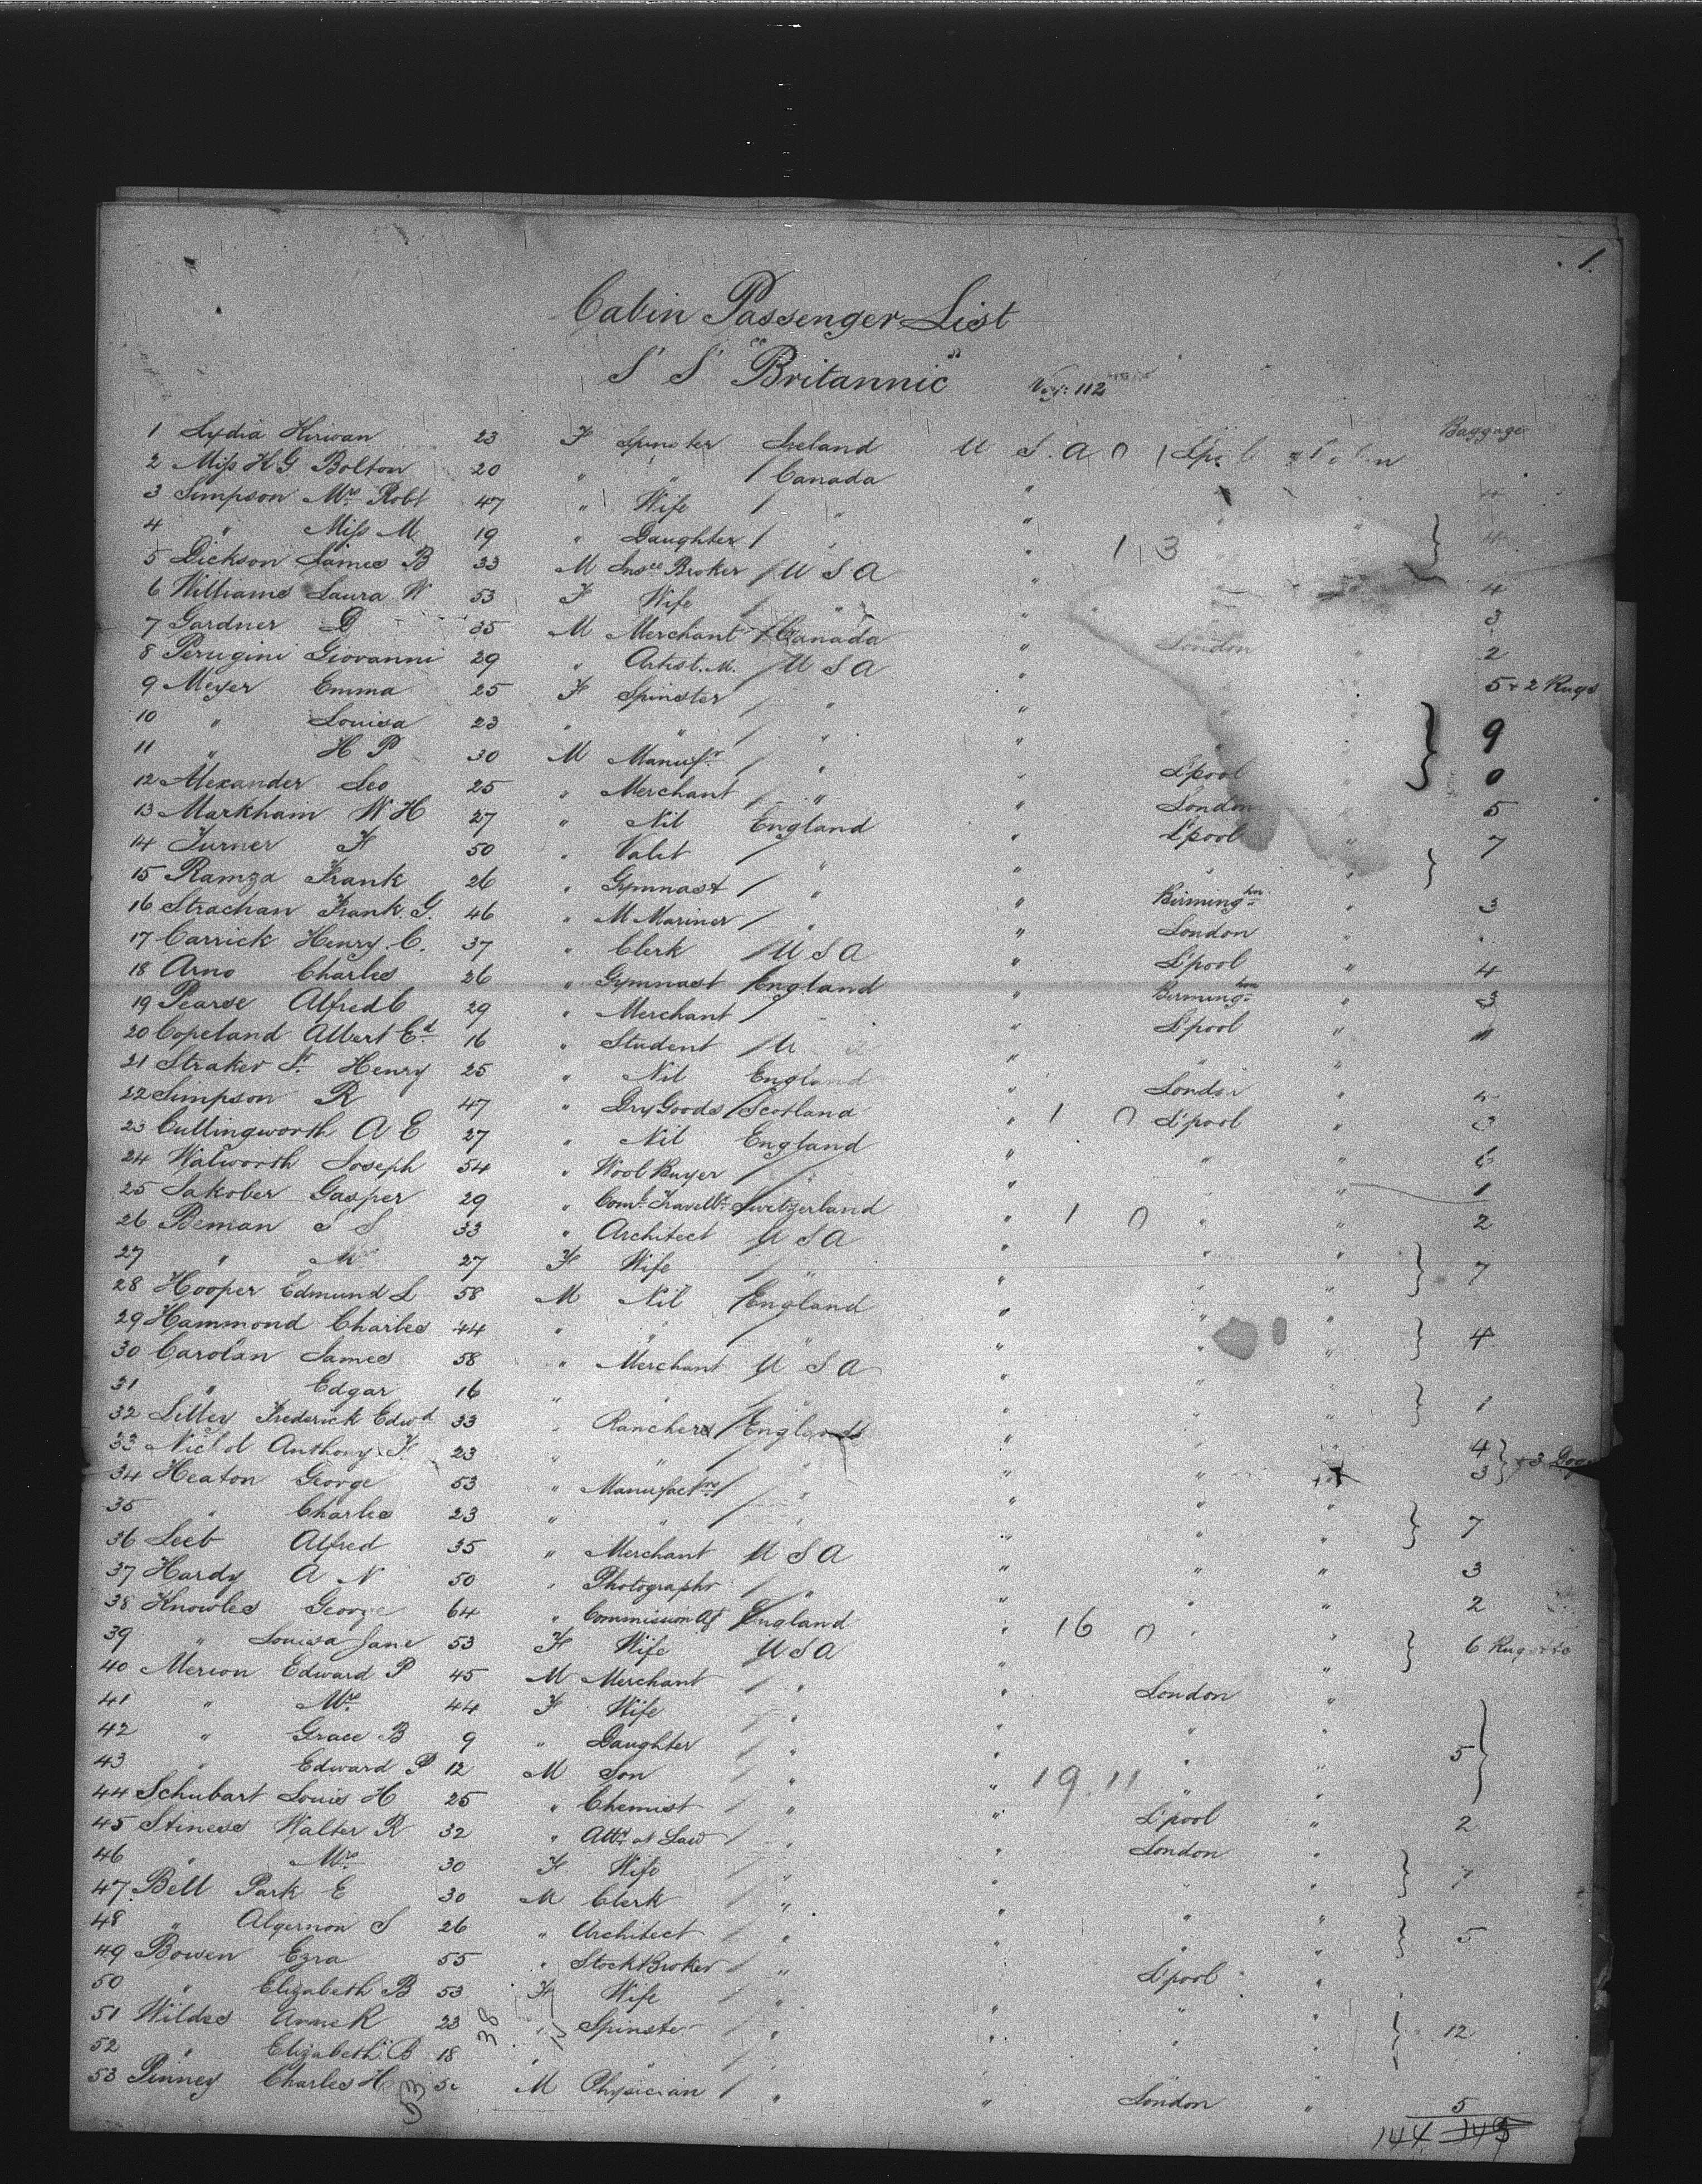 1.
Cabin Passenger List
S S "Britannic" Voy: 112
Baggage
1 Lydia Kirwan 23 F Spinster Ireland U S. A 0 1
2 Miss H G Bolton 20 " " / Canada "
3 Simpson Mrs Robt 47 " Wife / " " " "
4 " Miss M 19 " Daughter / " " 1 3 " " } 4
5 Dickson James B 33 M Insce Broker / U S A " 4
6 Williams Laura W 53 F Wife / " " 3
7 Gardner D 35 M Merchant / Canada " London " 2
8 Perugini Giovanni 29 " Artist. M. / U S A " 5 + 2 Rugs
9 Meyer Emma 25 F Spinster / " " " "
10 " Louisa 23 " " / " " " } 9
11 " H P 30 M Manufr / " " L'pool 0
12 Alexander Leo 25 " Merchant / " " London 5
13 Markham W H 27 " Nil England " L'pool " 7
14 Turner F 50 " Valet / " " " " }
15 Ramza Frank 26 " Gymnast / " " Birminghm " 3
16 Strachan Frank. G. 46 " M Mariner / " " London "
17 Carrick Henry. C. 37 " Clerk / U S A " L'pool " 4
18 Arno Charles 26 " Gymnast / England " Birminghm " 3
19 Pearse Alfred C 29 " Merchant / " L'pool "
20 Copeland Albert Ed 16 " Student / U " " "
21 Straker Henry 25 " Nil England " London " 4
22 Simpson R 47 " Dry Goods / Scotland " 1 0 L'pool " 3
23 Cullingworth A E 27 " Nil England " " " 6
24 Walworth Joseph 54 " Wool Buyer / " " " 1
25 Jakober Gasper 29 " Coml Travellr Switzerland " 1 0 " " 2
26 Beman S S 33 " Architect U S A " " "
27 " Mrs 27 F Wife / " " " " } 7
28 Hooper Edmund L 58 M Nil / England " " "
29 Hammond Charles 44 " " / " " " " } 4
30 Carolan James 58 " Merchant U S A " " "
31 " Edgar 16 " " " " " " } 1
32 Lilley Frederick Edwd 33 " Rancher / England " " " 4
33 Nichol Anthony F. 23 " " / " " " " 3 } + 3 Dogs
34 Heaton George 53 " Manufactrs / " " " "
35 " Charles 23 " " / " " " " } 7
36 Leeb Alfred 35 " Merchant U S A " " " 3
37 Hardy A N 50 " Photographr / " " " " 2
38 Knowles George 64 " Commission Agt England " 16 0 " "
39 " Louisa Jane 53 F Wife U S A " " } 6 Rugs
40 Merion Edward P 45 M Merchant / " " London "
41 " Mrs 44 F Wife / " " " "
42 " Grace B 9 " Daughter / " " " " } 5
43 " Edward P 12 M Son / " " 19 11 " "
44 Schubart Louis H 25 " Chemist / " " L'pool " 2
45 Stiness Walter R 32 " Atty at Law / " " London "
46 " Mrs 30 F Wife / " " " " } 7
47 Bell Park E 30 M Clerk / " " " "
48 " Algernon S 26 " Architect / " " " " } 5
49 Bowen Ezra 55 " Stock Broker / " L'pool "
50 " Elizabeth B 53 F Wife / " " " "
51 Wildes Annie R 23 38 " Spinster " " " } 12
52 " Elizabeth B 18 " " / " "
53 Pinney Charles H M Physician / " " London " 5
53
144 145